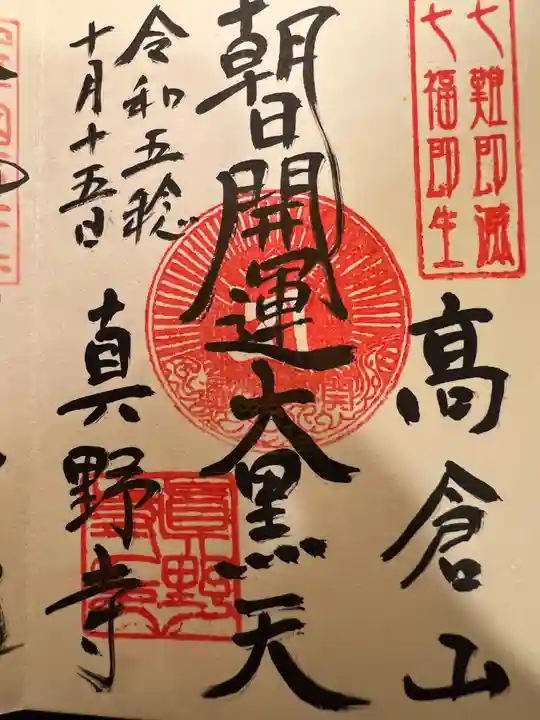 七難即滅
七福即生
高倉山
朝日開運大黒天
真野寺
令和五稔
十月十五日
真野